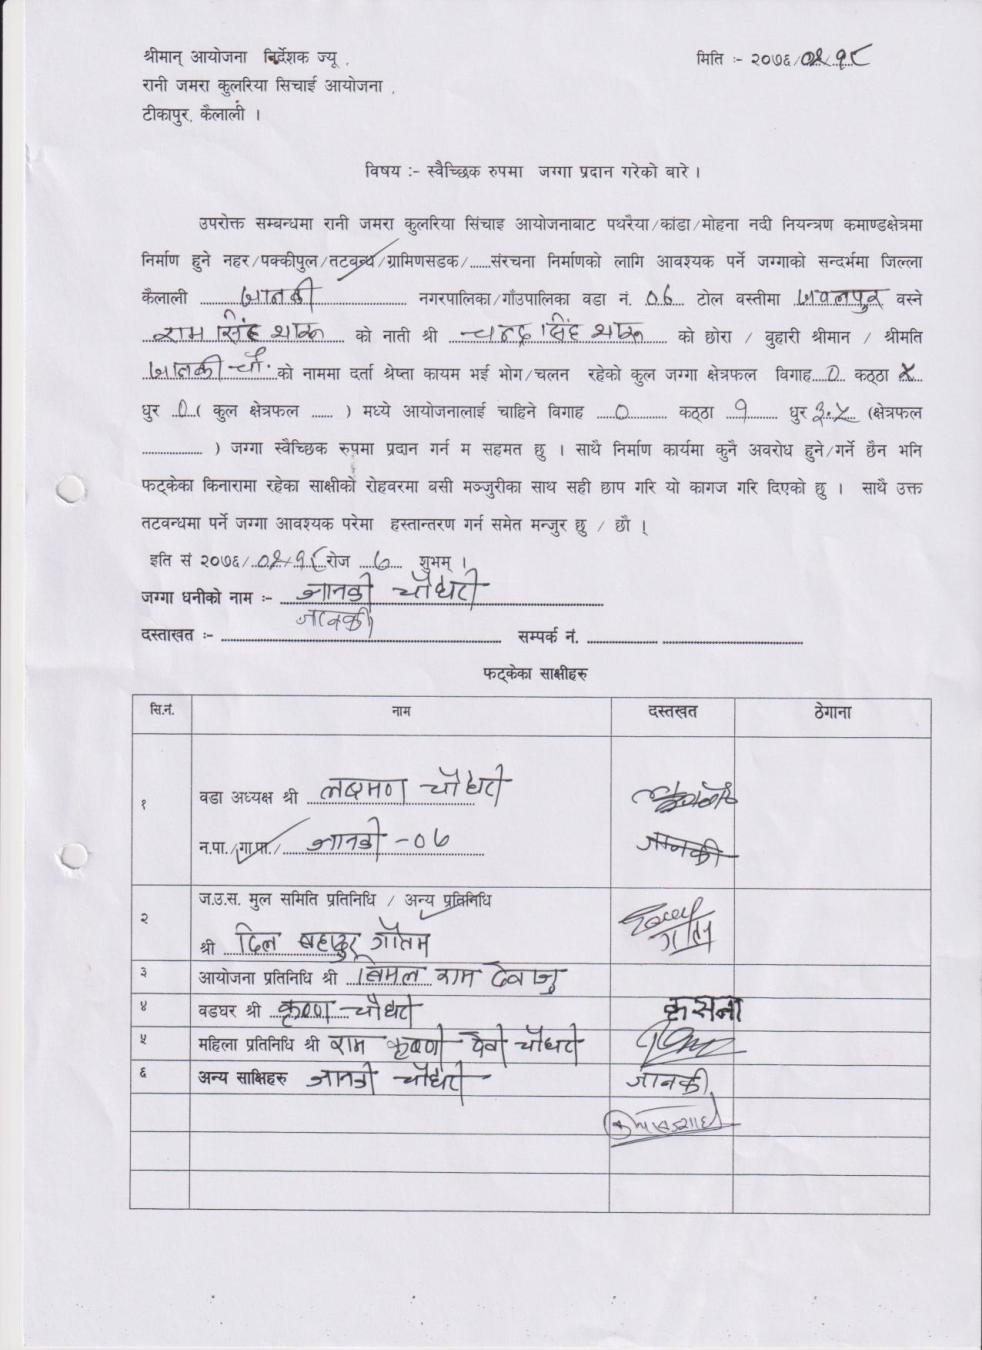 श्रीमान् आयोजना निर्देशक ज्यू , मिति :- २०७६/०२/१८
रानी जमरा कुलरिया सिचाई आयोजना ,
टीकापुर, कैलाली ।
विषय :- स्वैच्छिक रुपमा जग्गा प्रदान गरेको बारे ।
उपरोक्त सम्बन्धमा रानी जमरा कुलरिया सिंचाइ आयोजनाबाट पथरैया/कांडा/मोहना नदी नियन्त्रण कमाण्डक्षेत्रमा
निर्माण हुने नहर/पक्कीपुल/तटबन्ध/ग्रामिणसडक/......संरचना निर्माणको लागि आवश्यक पर्ने जग्गाको सन्दर्भमा जिल्ला
कैलाली जानकी नगरपालिका/गाँउपालिका वडा नं. ०६ टोल वस्तीमा जबलपुर वस्ने
राम सिंह थारू को नाती श्री चन्द्र सिंह थारू को छोरा / बुहारी श्रीमान / श्रीमति
जानकी चौ. को नाममा दर्ता श्रेष्ता कायम भई भोग/चलन रहेको कुल जग्गा क्षेत्रफल विगाह ० कठ्ठा
धुर ० ( कुल क्षेत्रफल ...... ) मध्ये आयोजनालाई चाहिने विगाह ० कठ्ठा १ धुर ३.५ (क्षेत्रफल
.................. ) जग्गा स्वैच्छिक रुपमा प्रदान गर्न म सहमत छु । साथै निर्माण कार्यमा कुनै अवरोध हुने/गर्ने छैन भनि
फट्केका किनारामा रहेका साक्षीको रोहवरमा बसी मञ्जुरीका साथ सही छाप गरि यो कागज गरि दिएको छु । साथै उक्त
तटवन्धमा पर्ने जग्गा आवश्यक परेमा हस्तान्तरण गर्न समेत मन्जुर छु / छौ ।
इति सं २०७६/०२/१८ रोज ७ शुभम् ।
जग्गा धनीको नाम :- जानकी चौधरी
दस्ताखत :- जानकी सम्पर्क नं.
फट्केका साक्षीहरु
सि.नं. नाम दस्तखत ठेगाना
१ वडा अध्यक्ष श्री लक्ष्मण चौधरी
न.पा./गा.पा./ जानकी -०६ जानकी
२ ज.उ.स. मुल समिति प्रतिनिधि / अन्य प्रतिनिधि
श्री दिल बहादुर गौतम
३ आयोजना प्रतिनिधि श्री बिमल राम देवाजु
४ वडघर श्री कृष्ण चौधरी कसना
५ महिला प्रतिनिधि श्री राम कृष्णी देवी चौधरी
६ अन्य साक्षिहरु जानकी चौधरी जानकी